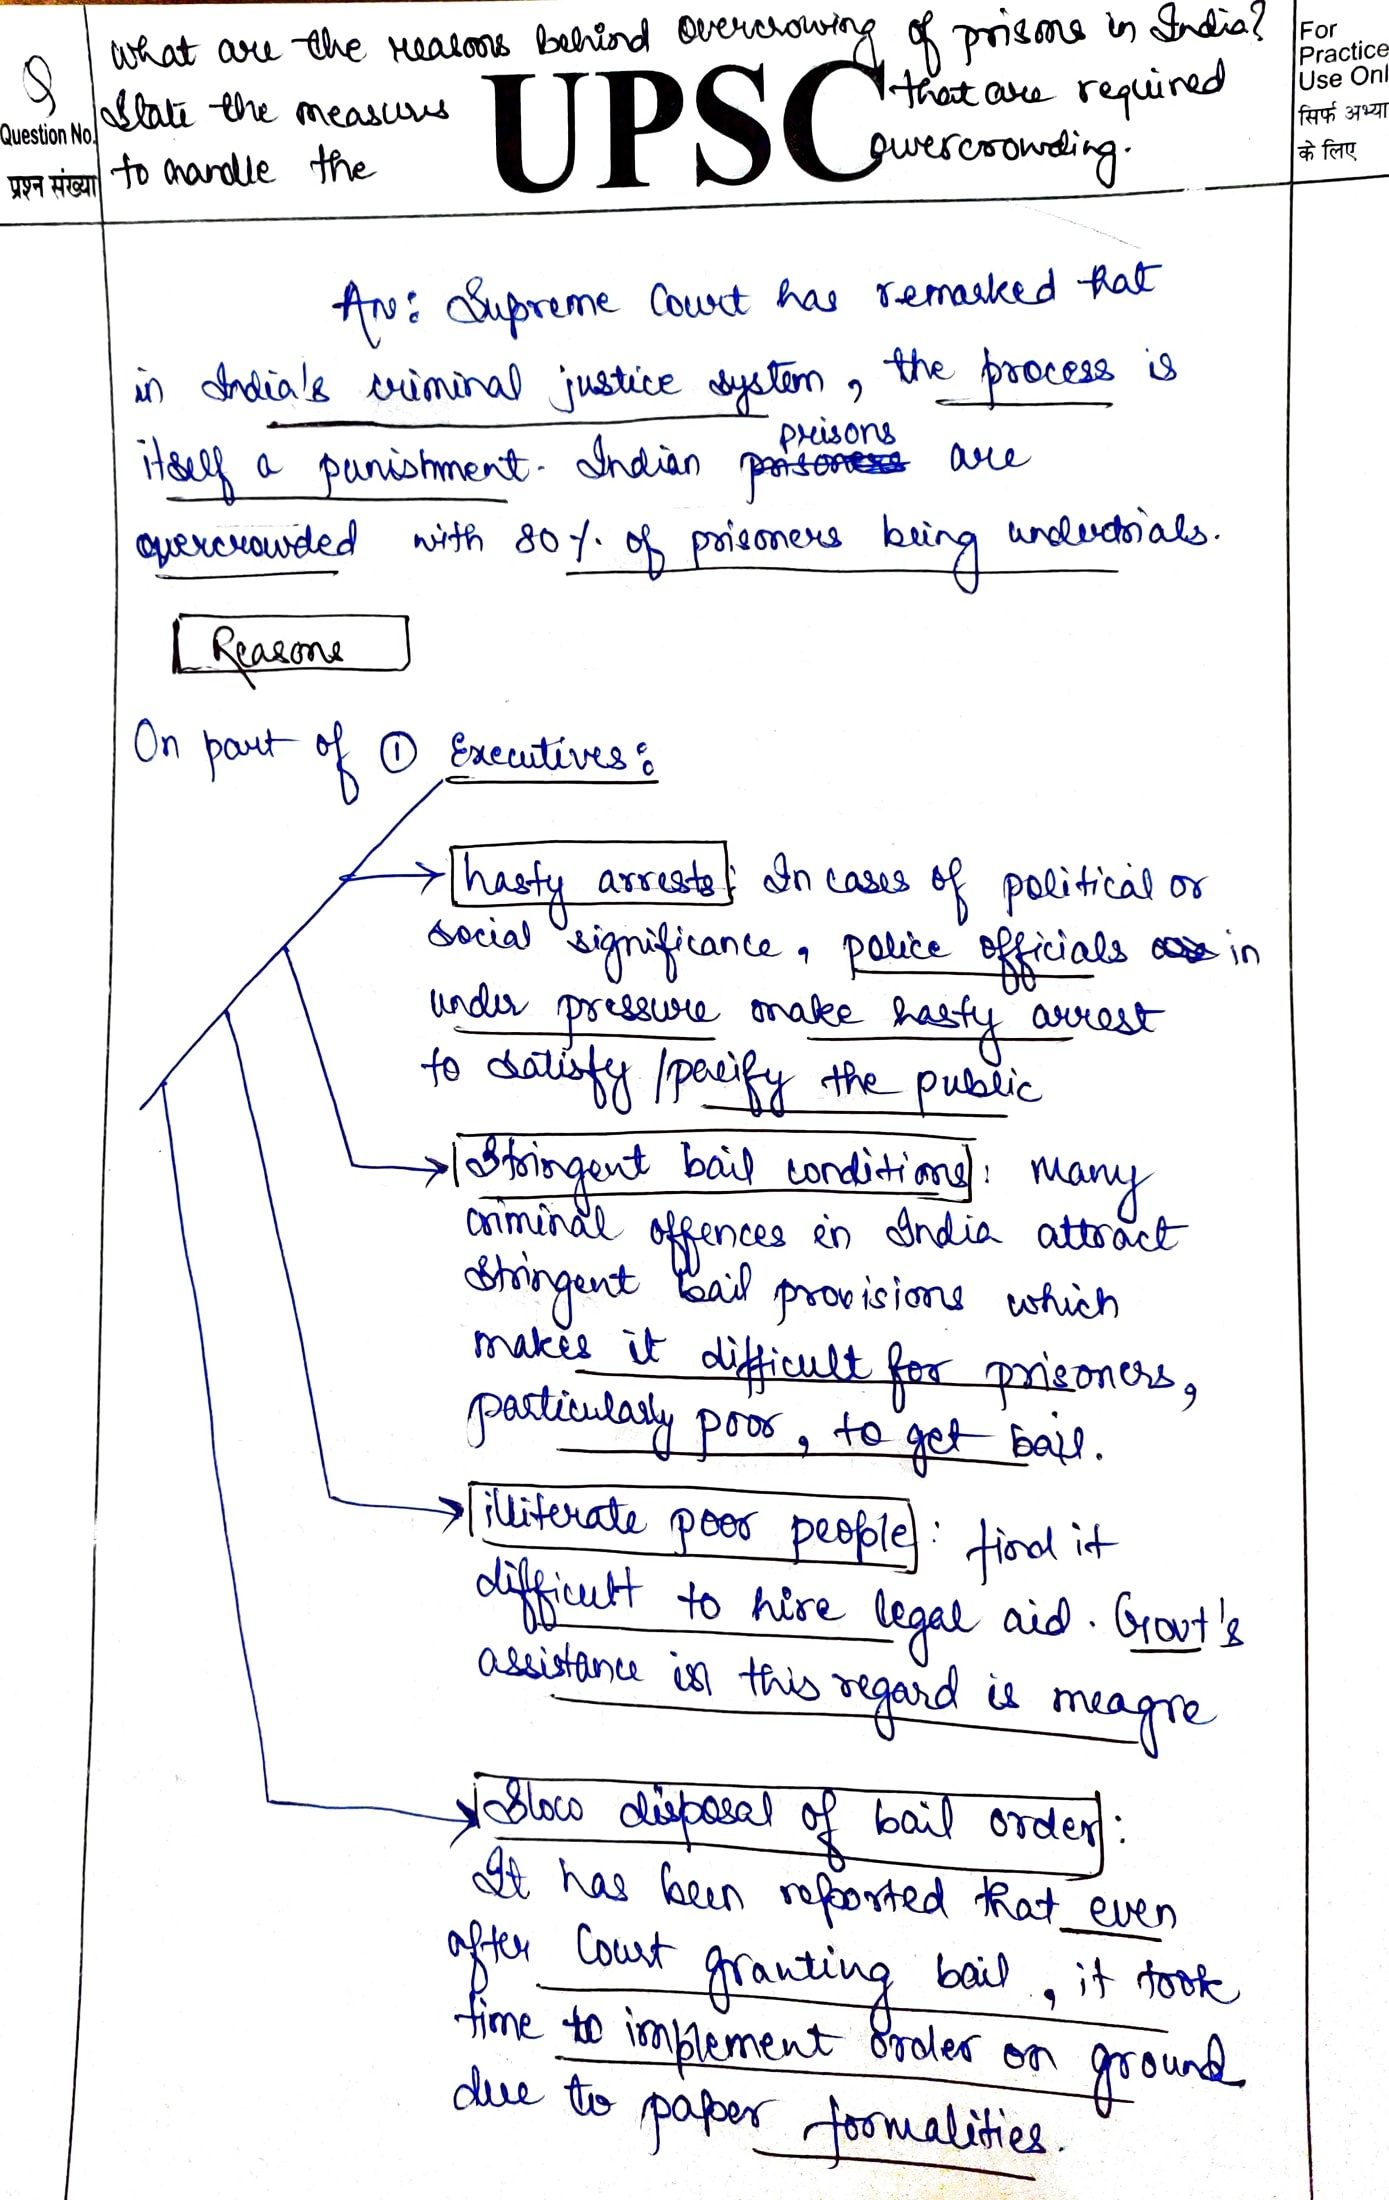 What are the reasons behind overcrowing of prisons in India?
Q
State the measures UPSC that are required
to handle the overcrowding.
Question No.
प्रश्न संख्या
For
Practice
Use Onl
सिर्फ अभ्या
के लिए
Ans: Supreme Court has remarked that
in India's criminal justice system, the process is
itself a punishment. Indian prisons are
overcrowded with 80% of prisoners being undertrials.
Reasons
On part of ① Executives:
hasty arrests: In cases of political or
social significance, police officials in
under pressure make hasty arrest
to satisfy /pacify the public
Stringent bail conditions: Many
criminal offences in India attract
stringent bail provisions which
makes it difficult for prisoners,
particularly poor, to get bail.
illiterate poor people: find it
difficult to hire legal aid. Govt's
assistance in this regard is meagre
Slow disposal of bail order:
It has been reported that even
after Court granting bail, it took
time to implement order on ground
due to paper formalities.